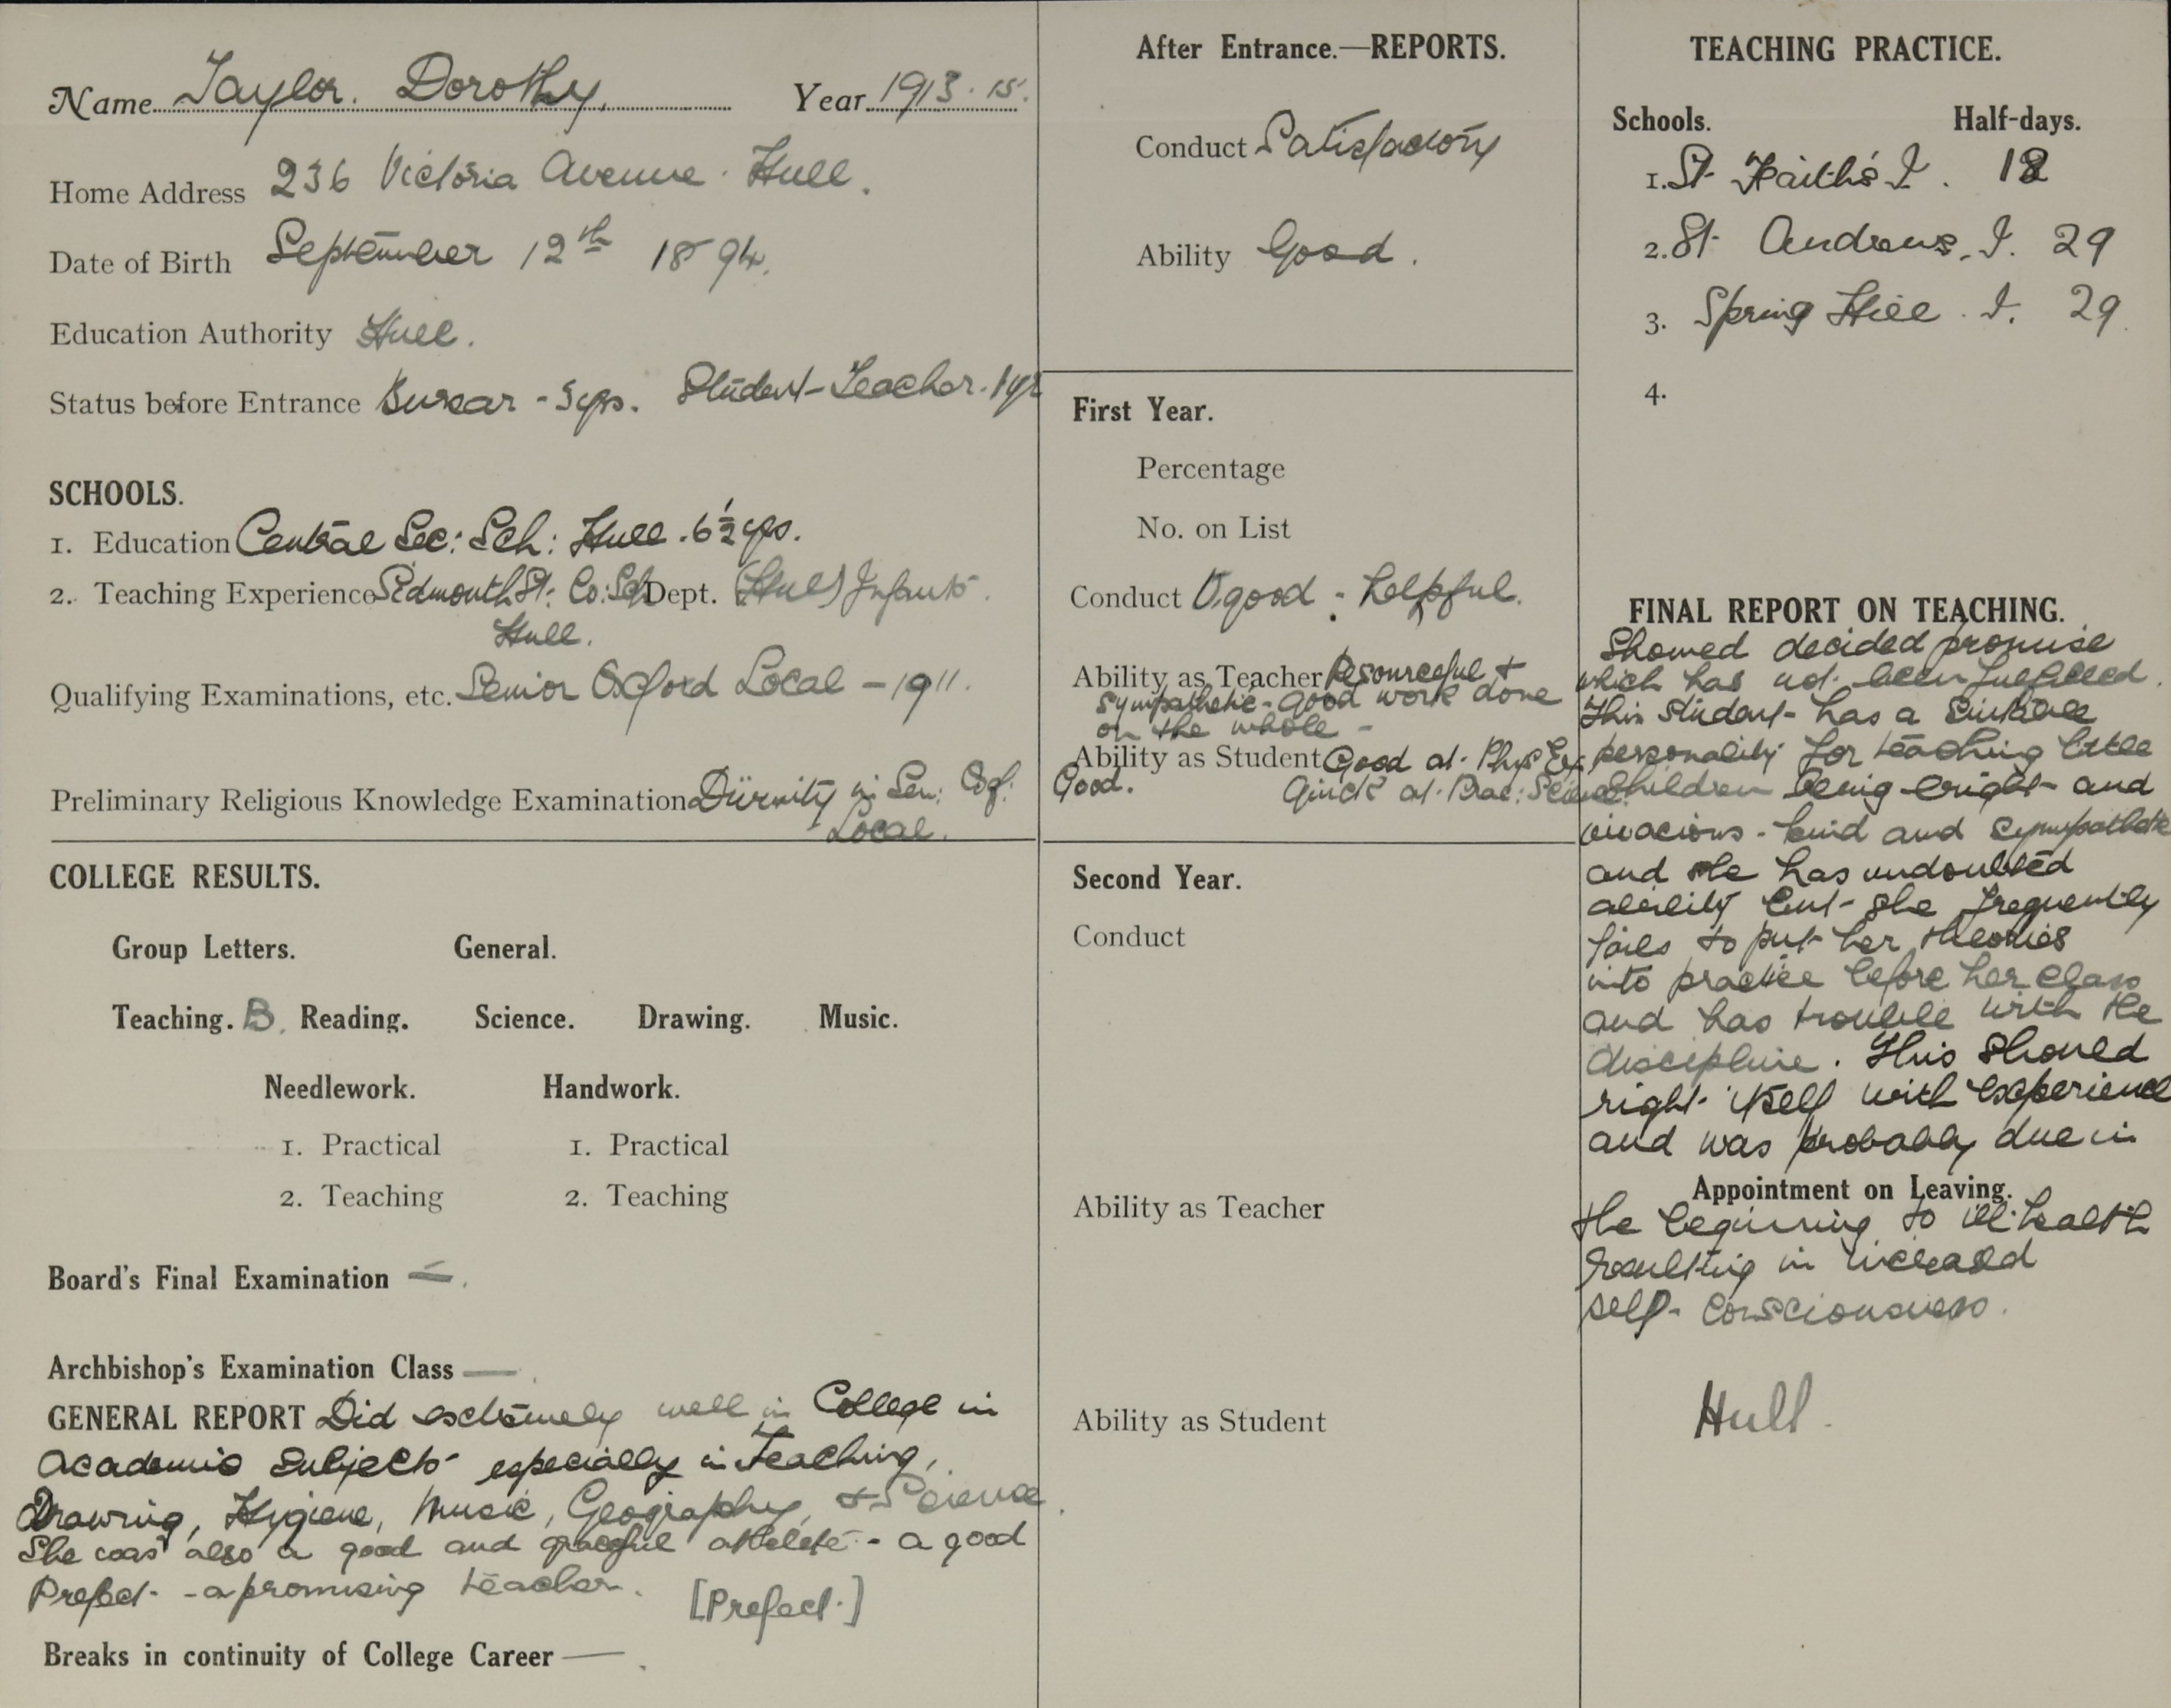 Name Taylor. Dorothy. Year 1913.15.
Home Address 236 Victoria Avenue. Hull.
Date of Birth September 12th 1894.
Education Authority Hull.
Status before Entrance Bursar - 3yrs. Student-Teacher. 1yr
SCHOOLS.
1. Education Central Sec: Sch: Hull. 6½ yrs.
2. Teaching Experience Sidmouth St. Co: Sch Dept. (Hull) Infants.
Hull.
Qualifying Examinations, etc. Senior Oxford Local - 1911.
Preliminary Religious Knowledge Examination Divinity in Sen: Oxf:
Local.
COLLEGE RESULTS.
Group Letters. General.
Teaching. B. Reading. Science. Drawing. Music.
Needlework. Handwork.
1. Practical 1. Practical
2. Teaching 2. Teaching
Board's Final Examination —.
Archbishop's Examination Class —.
GENERAL REPORT Did extremely well in College in
Academic Subjects especially in Teaching,
Drawing, Hygiene, Music, Geography, & Science.
She was also a good and graceful athlete - a good
Prefect - a promising teacher. [Prefect.]
Breaks in continuity of College Career —.
After Entrance.—REPORTS.
Conduct Satisfactory
Ability Good.
First Year.
Percentage
No. on List
Conduct V. good - helpful.
Ability as Teacher Resourceful &
sympathetic - good work done
on the whole -
Ability as Student Good at Phys Ex
Good. Quick at Prac: Science.
Second Year.
Conduct
Ability as Teacher
Ability as Student
TEACHING PRACTICE.
Schools. Half-days.
1. St Faith's I. 18
2. St Andrews. I. 29
3. Spring Hill. I. 29.
4.
FINAL REPORT ON TEACHING.
Showed decided promise
which has not been fulfilled.
This student has a suitable
personality for teaching little
children being bright and
vivacious - kind and sympathetic
and she has undoubted
ability but she frequently
fails to put her theories
into practice before her class
and has trouble with the
discipline. This should
right itself with experience
and was probably due in
Appointment on Leaving.
the beginning to ill-health
resulting in increased
self-consciousness.
Hull.